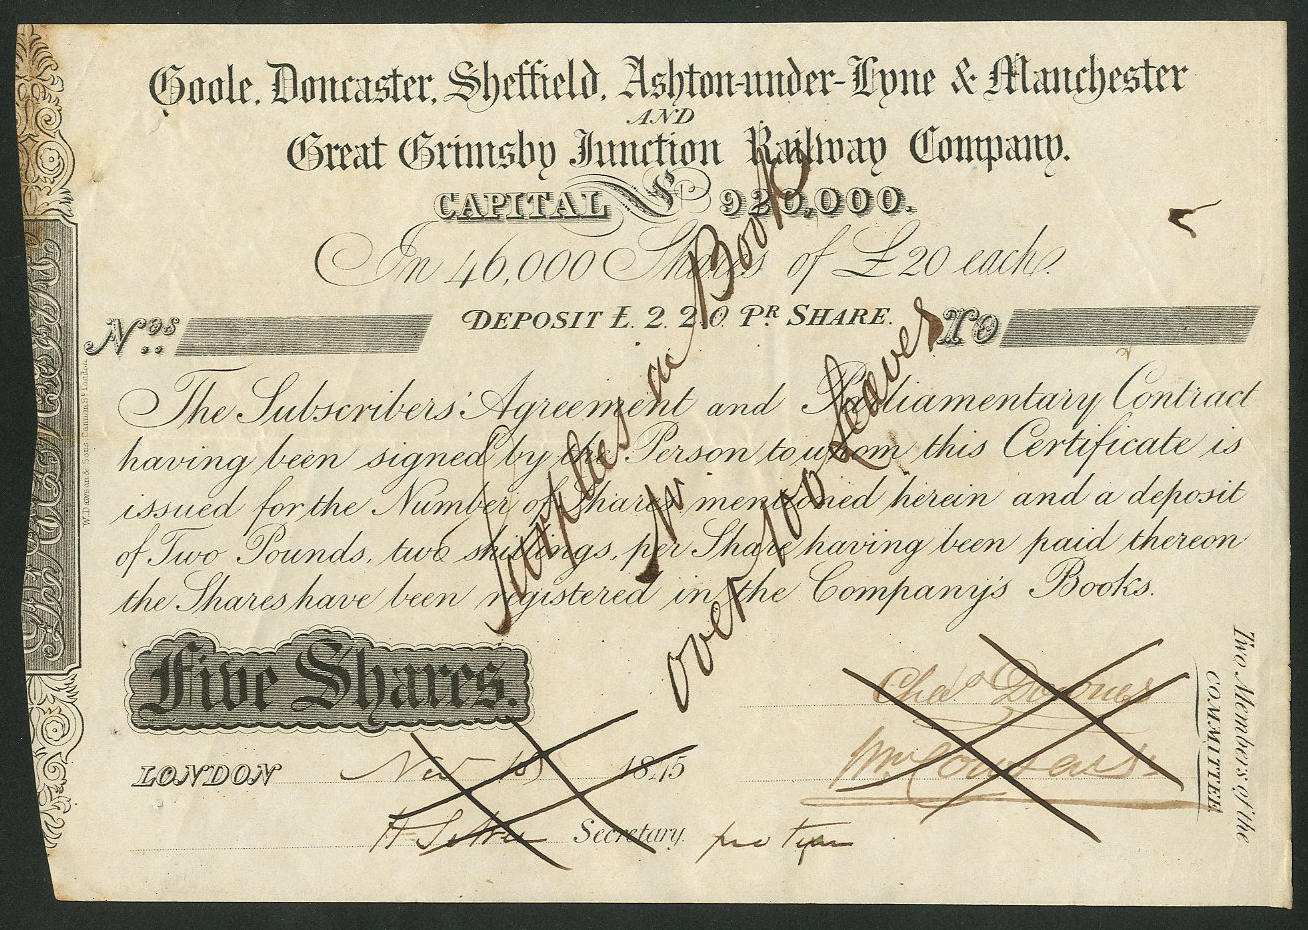 Goole, Doncaster, Sheffield, Ashton-under-Lyne & Manchester
AND
Great Grimsby Junction Railway Company.
CAPITAL £ 920,000.
In 46,000 Shares of £20 each.
Nos. DEPOSIT £. 2. 2. 0. PR SHARE. TO
The Subscribers' Agreement and Parliamentary Contract
having been signed by the Person to whom this Certificate is
issued for the Number of Shares mentioned herein and a deposit
of Two Pounds, two shillings, per Share having been paid thereon
the Shares have been registered in the Company's Books.
Five Shares.
LONDON Nov 1845
Secretary. pro tem
Chas
Wm
Two Members of the
COMMITTEE
in Books
over 100 Leaves